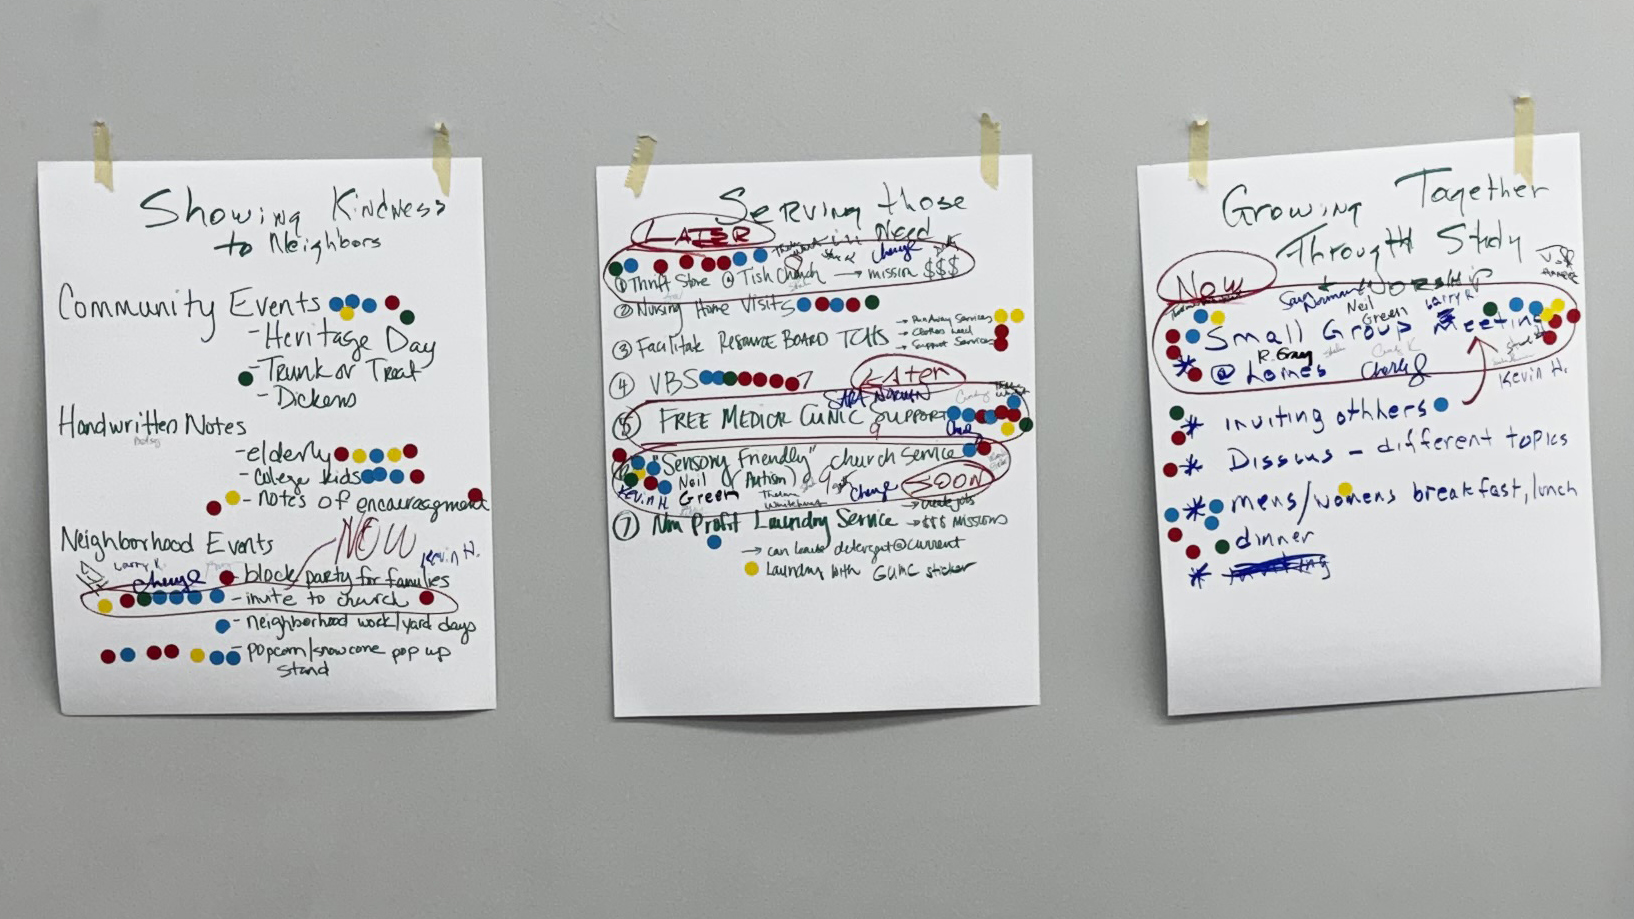 Showing Kindness
to Neighbors
Community Events
- Heritage Day
- Trunk or Treat
- Dickens
Handwritten Notes
- elderly
- College kids
- notes of encouragement
NOW
Neighborhood Events
Larry K.
Kevin H.
Cheryl
- block party for families
- invite to church
- neighborhood work/yard days
- popcorn/snowcone pop up
stand
Serving those
in Need
LATER
Cheryl
① Thrift Store @ Tish Church → mission $$$
② Nursing Home Visits
③ Facilitate Resource Board TCHS
→ Runaway Services
→ Clothes
→ Support Services
④ VBS
LATER
NORMAN
⑤ FREE MEDICAL CLINIC SUPPORT
"Sensory Friendly" church Service
Neil (Autism)
SOON
Kevin H.
Green
Cheryl
⑦ Non Profit Laundry Service
→ create jobs
→ $$$ MISSIONS
→ can leave detergent @ current
Laundry with GUMC sticker
Growing Together
Throught Study
+ WORSHIP
NOW
Norman
Neil
Green
Larry K
Small Group Meeting
R. Gray
@ homes
Cheryl
Kevin H.
* inviting othhers
* Disscus - different topics
* mens/womens breakfast, lunch
dinner
*